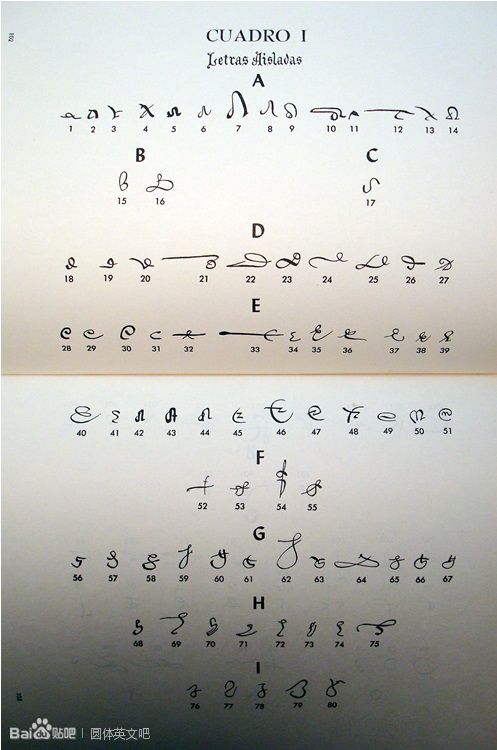 102
CUADRO I
Letras Aisladas
A
1 2 3 4 5 6 7 8 9 10 11 12 13 14
B C
15 16 17
D
18 19 20 21 22 23 24 25 26 27
E
28 29 30 31 32 33 34 35 36 37 38 39
40 41 42 43 44 45 46 47 48 49 50 51
F
52 53 54 55
G
56 57 58 59 60 61 62 63 64 65 66 67
H
68 69 70 71 72 73 74 75
I
76 77 78 79 80
Bai贴吧 | 圆体英文吧